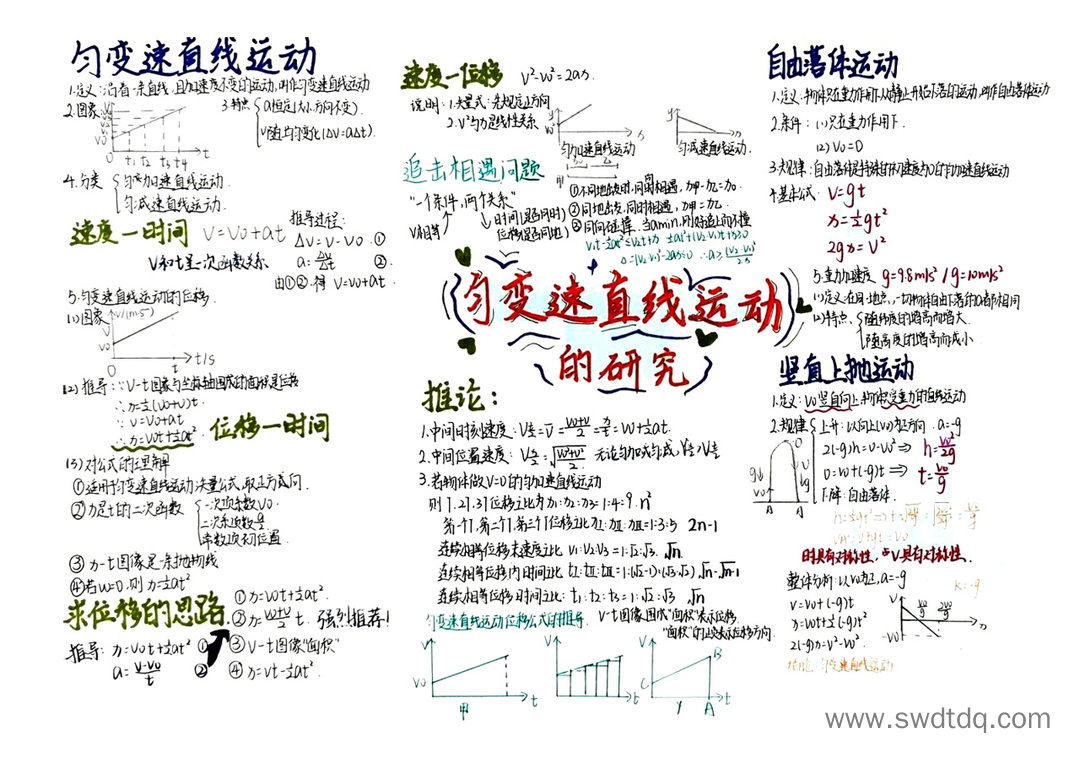 匀变速直线运动
1.定义:沿着一条直线,且加速度不变的运动,叫作匀变速直线运动
2.图象
V
V0
t1 t2 t3 t4 t
3.特点
a恒定(大小,方向不变)
V随t均匀变化(ΔV=aΔt).
4.分类
匀加速直线运动.
匀减速直线运动.
速度一时间 V=V0+at
V和t是一次函数关系
推导过程:
ΔV=V-V0 ①
a=ΔV/Δt ②
由①②得 V=V0+at.
5.匀变速直线运动的位移.
(1)图象
V/(m·s)
V
V0
0
t/s
(2)推导:∵V-t图象与坐标轴围成的面积是位移
∴x=½(V0+V)t
∵V=V0+at
∴x=V0t+½at²
位移一时间
(3)对公式的理解
①适用于匀变速直线运动,矢量式,取正方向.
②x是t的二次函数
一次项系数V0
二次项系数a/2
常数项初位置
③x-t图像是一条抛物线
④若V0=0,则x=½at²
求位移的思路
①x=V0t+½at²
②x=(V0+V)/2 t. 强烈推荐!
③V-t图像"面积"
④x=Vt-½at²
推导:x=V0t+½at² ①
a=(V-V0)/t ②
速度一位移 V²-V0²=2as.
说明:1.矢量式:先规定正方向
2.V²与x是线性关系
匀加速直线运动
匀减速直线运动
追击相遇问题
"一个条件,两个关系"
V相等
时间(是否同时)
位移(是否同地)
①不同地出发时,同时相遇,x甲-x乙=x0.
②同地出发,同时相遇,x甲=x乙.
匀变速直线运动
的研究
推论:
1.中间时刻速度:Vt/2=V̄=(V0+V)/2=x/t=V0+½at.
2.中间位置速度:Vx/2=√((V0²+V²)/2) 无论匀加或匀减,Vx/2>Vt/2
3.若物体做V=0的匀加速直线运动
则1.2T.3T位移之比为x1:x2:x3=1:4:9. n²
第一个T,第二个T,第三个T位移之比xⅠ:xⅡ:xⅢ=1:3:5 2n-1
连续相等位移末速度之比 V1:V2:V3=1:√2:√3. √n
连续相等位移内时间之比 tⅠ:tⅡ:tⅢ=1:(√2-1):(√3-√2), √n-√n-1
连续相等位移时间之比:t1:t2:t3=1:√2:√3 √n
匀变速直线运动位移公式的推导.
V-t图像,围成"面积"表示位移.
"面积"的正负表示位移方向.
V
V0
t
甲
V
t
V
C
B
t
A
自由落体运动
1.定义:物体只在重力作用下,从静止开始下落的运动,叫作自由落体运动
2.条件:(1)只在重力作用下.
(2)V0=0
3.规律:自由落体是特殊的初速度为0的匀加速直线运动
4.基本公式
V=gt
x=½gt²
2gx=V²
5.重力加速度 g=9.8m/s² / g=10m/s²
(1)定义:在同一地点,一切物体自由下落的加速度都相同
(2)特点.
随纬度的增高而增大.
随高度的增高而减小.
竖直上抛运动
1.定义:V0竖直向上,物体只受重力的直线运动
2.规律
上升:以向上(V0)为正方向.a=-g
2(-g)h=0-V0² ⇒ h=V0²/2g
0=V0+(-g)t ⇒ t=V0/g
下降:自由落体.
t具有对称性,V具有对称性.
整体分析:以V0为正,a=-g
V=V0+(-g)t
x=V0t+½(-g)t²
2(-g)x=V²-V0²
k=-g
匀变速直线运动
www.swdtdq.com